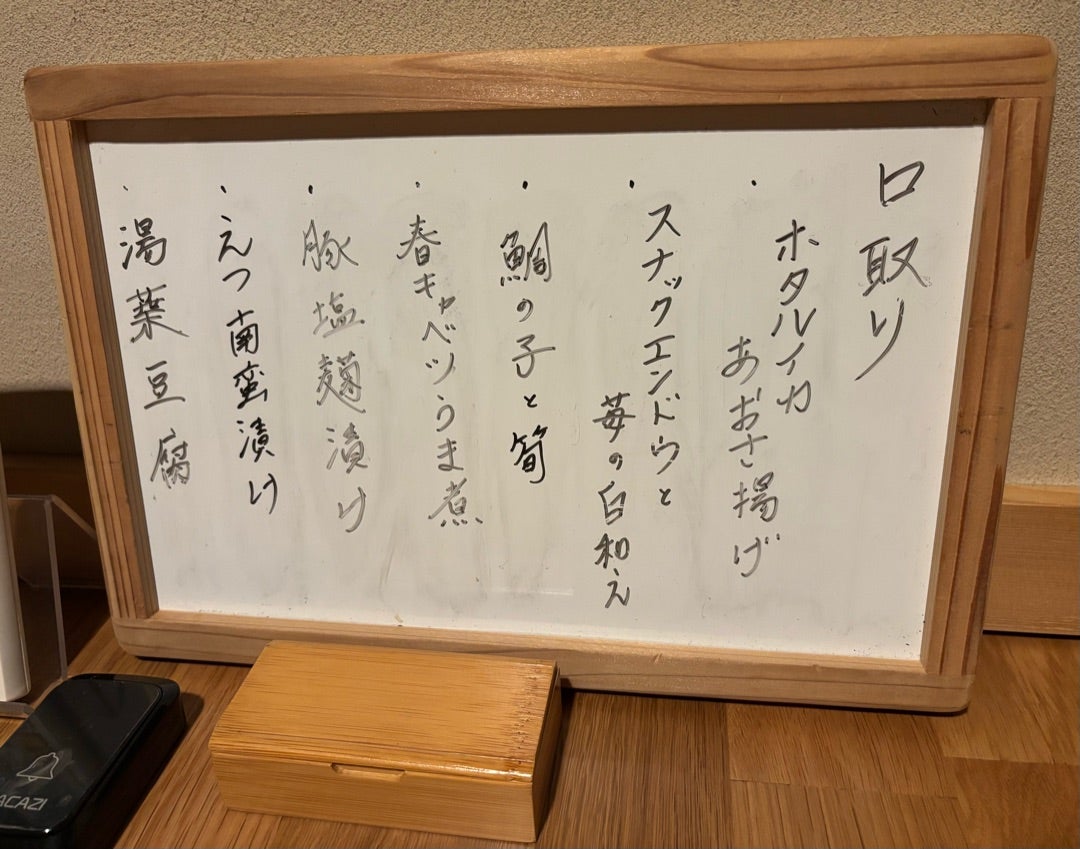 口取り
・ホタルイカ
あおさ揚げ
・スナックエンドウと
苺の白和え
・鯛の子と筍
・春キャベツうま煮
・豚塩麹漬け
・えつ南蛮漬け
・湯葉豆腐
ACAZI